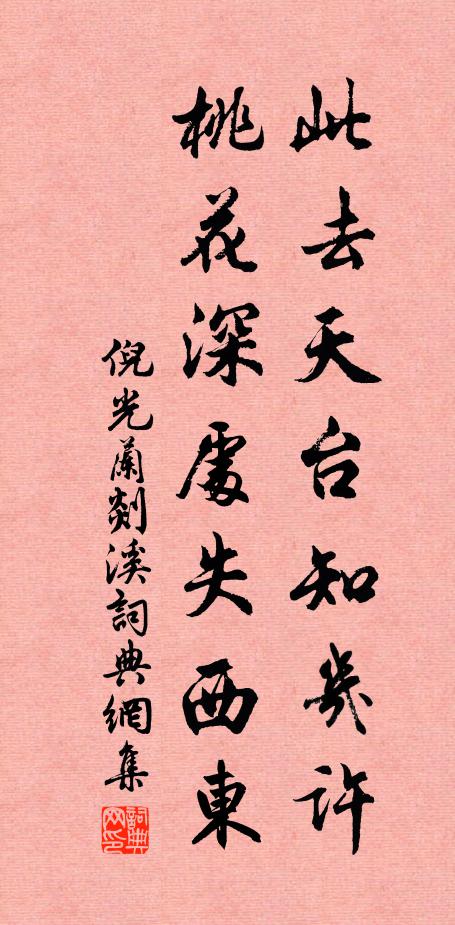 此去天台知幾許
桃花深處失西東
倪光蘭剡溪詞典網集
詞典网印